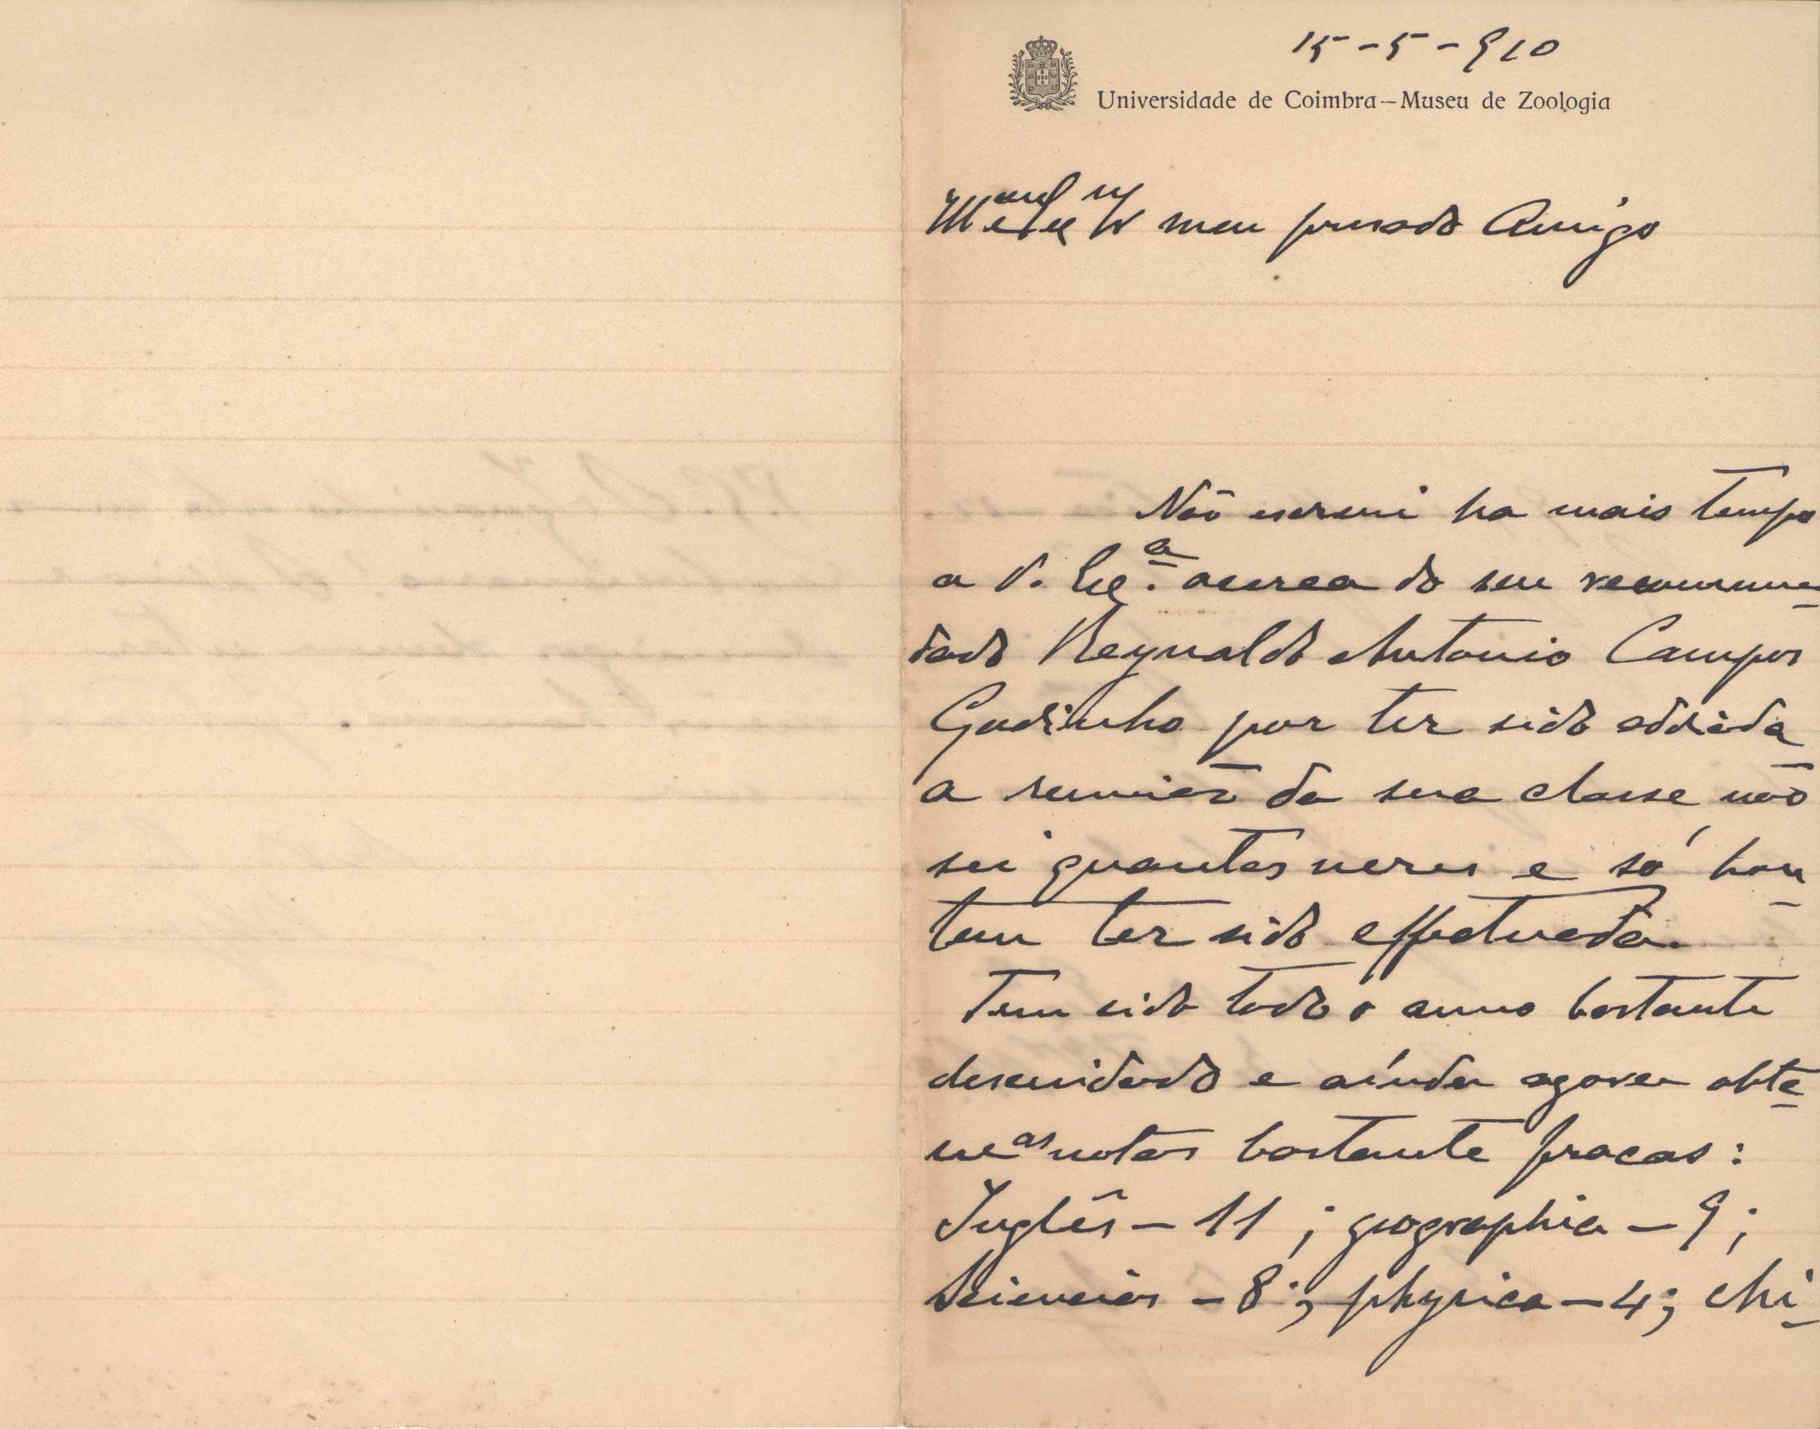 15-5-910
Universidade de Coimbra – Museu de Zoologia
meu presado Amigo
Não escrevi ha mais tempo
a V. Ex.ª acerca do seu recommen-
dado Reynaldo Antonio Campos
Godinho por ter sido addiada
a reunião da sua classe não
sei quantas vezes e só hon-
tem ter sido effectuada.
Tem sido todo o anno bastante
descuidado e aínda agora obte-
ve as notas bastante fracas:
Inglês – 11 ; geographia – 9 ;
Sciencias – 8 ; physica – 4 ; chi-